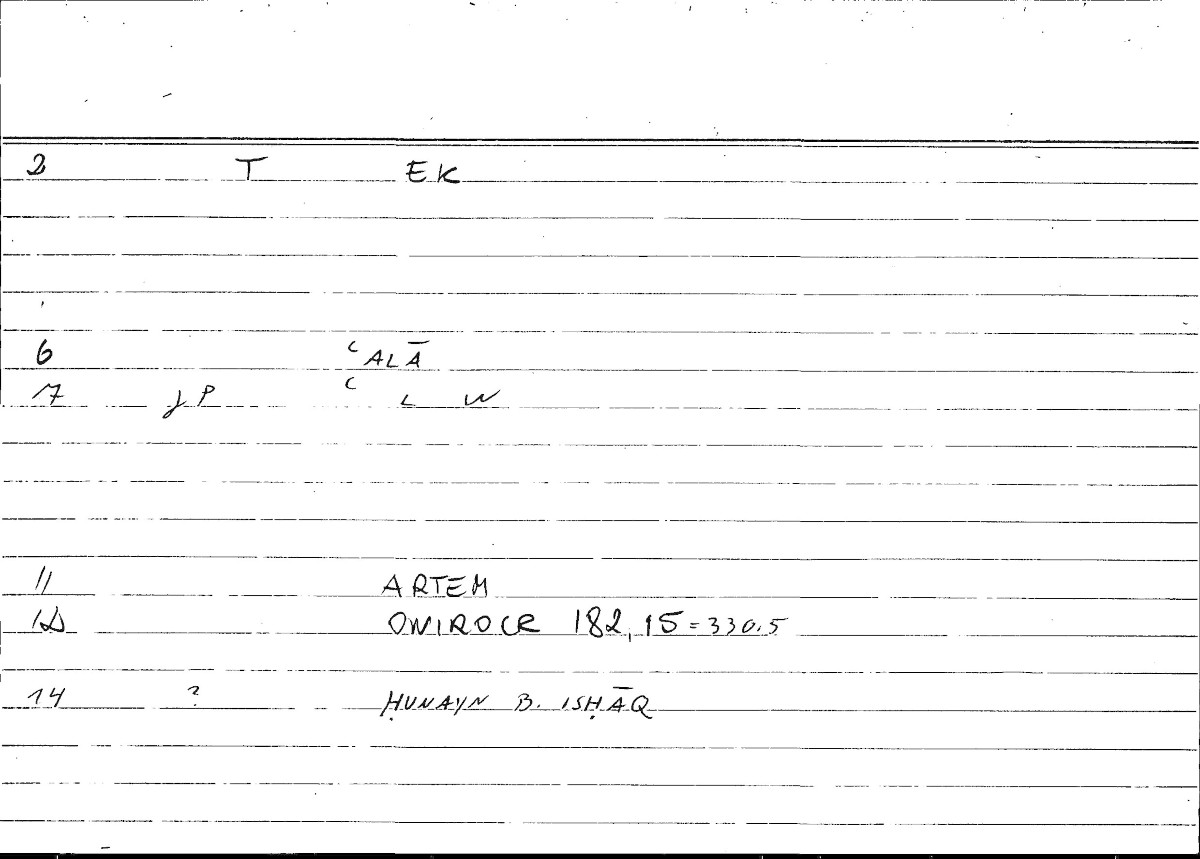 2 T EK
6 ʿALĀ
17 JP ʿ L W
11 ARTEM
12 ONIROCR 182,15=330.5
14 ? ḤUNAYN B. ISḤĀQ